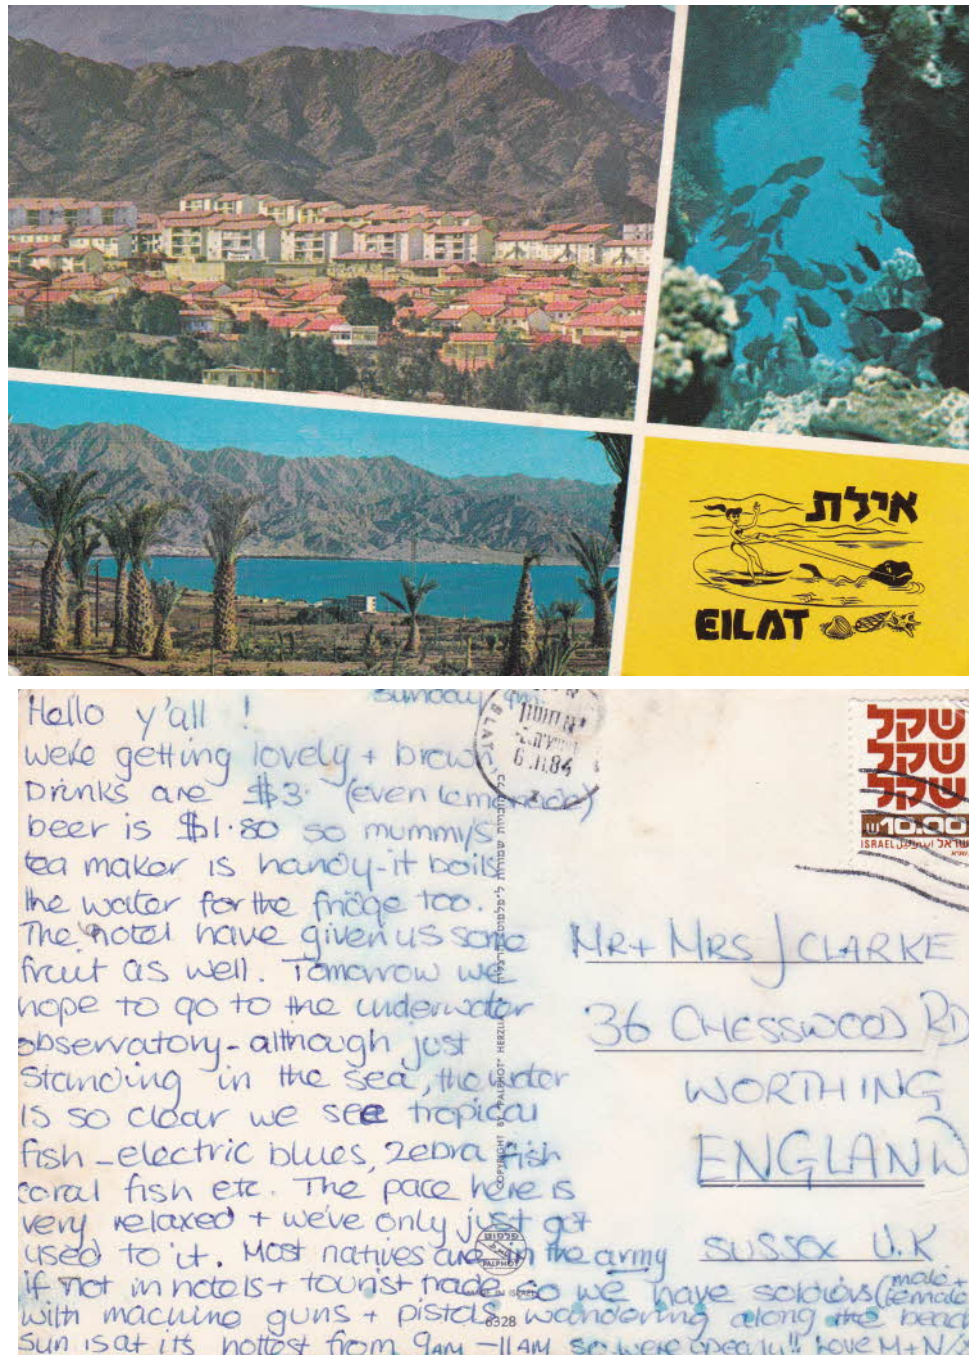 אילת
EILAT
Sunday
Hello y'all !
we're getting lovely + brown
Drinks are $3. (even lemonade)
beer is $1.80 so mummy's
tea maker is handy - it boils
the water for the fridge too.
The hotel have given us some
fruit as well. Tomorrow we
hope to go to the underwater
observatory - although just
standing in the sea, the water
is so clear we see tropical
fish - electric blues, zebra fish
coral fish etc. The pace here is
very relaxed + we've only just got
used to it. Most natives are in the army
if not in hotels + tourist trade so we have soldiers (male +
female)
with machine guns + pistols wandering along the beach
Sun is at its hottest from 9AM - 11AM so we're !! Love M + N
ELAT
6.11.84
שקל
שקל
שקל
10.00
ISRAEL اسرائيل ישראל
COPYRIGHT BY "PALPHOT" HERZLIA
פלפוט
PALPHOT
MADE IN ISRAEL
8328
MR + MRS J CLARKE
36 CHESSWOOD RD
WORTHING
ENGLAND
SUSSEX U.K